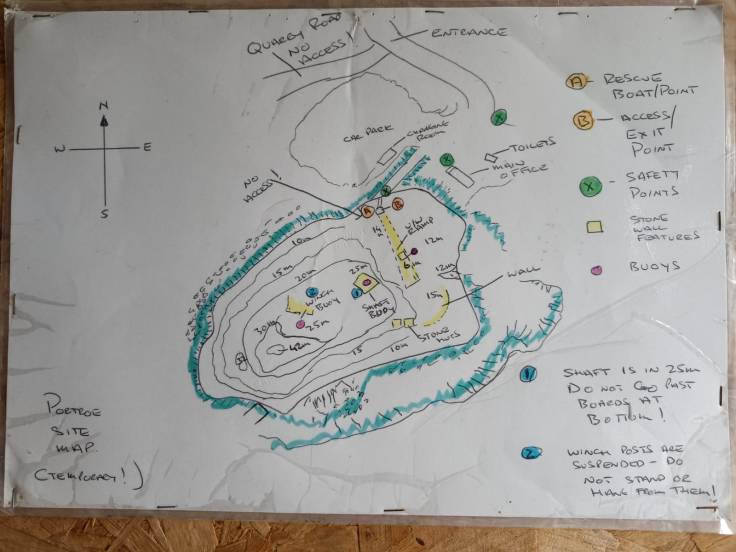 QUARRY ROAD
NO
ACCESS!
ENTRANCE
A - RESCUE
BOAT/POINT
B - ACCESS/
EXIT
POINT
X - SAFETY
POINTS
STONE
WALL
FEATURES
BUOYS
N
W E
S
CAR PARK
CHANGING
ROOM
X
X
X
TOILETS
MAIN
OFFICE
NO
ACCESS!
A B
RAMP
12m
6m
12m
10m
15m
20m
25m
2
1
WINCH
BUOY
SHAFT
BUOY
30m
25m
42m
15
10m
15m
WALL
STONE
HUTS
PORTROE
SITE
MAP.
(TEMPORARY!)
1 SHAFT IS IN 25m
DO NOT GO PAST
BOARDS AT
BOTTOM!
2 WINCH POSTS ARE
SUSPENDED - DO
NOT STAND OR
HANG FROM THEM!